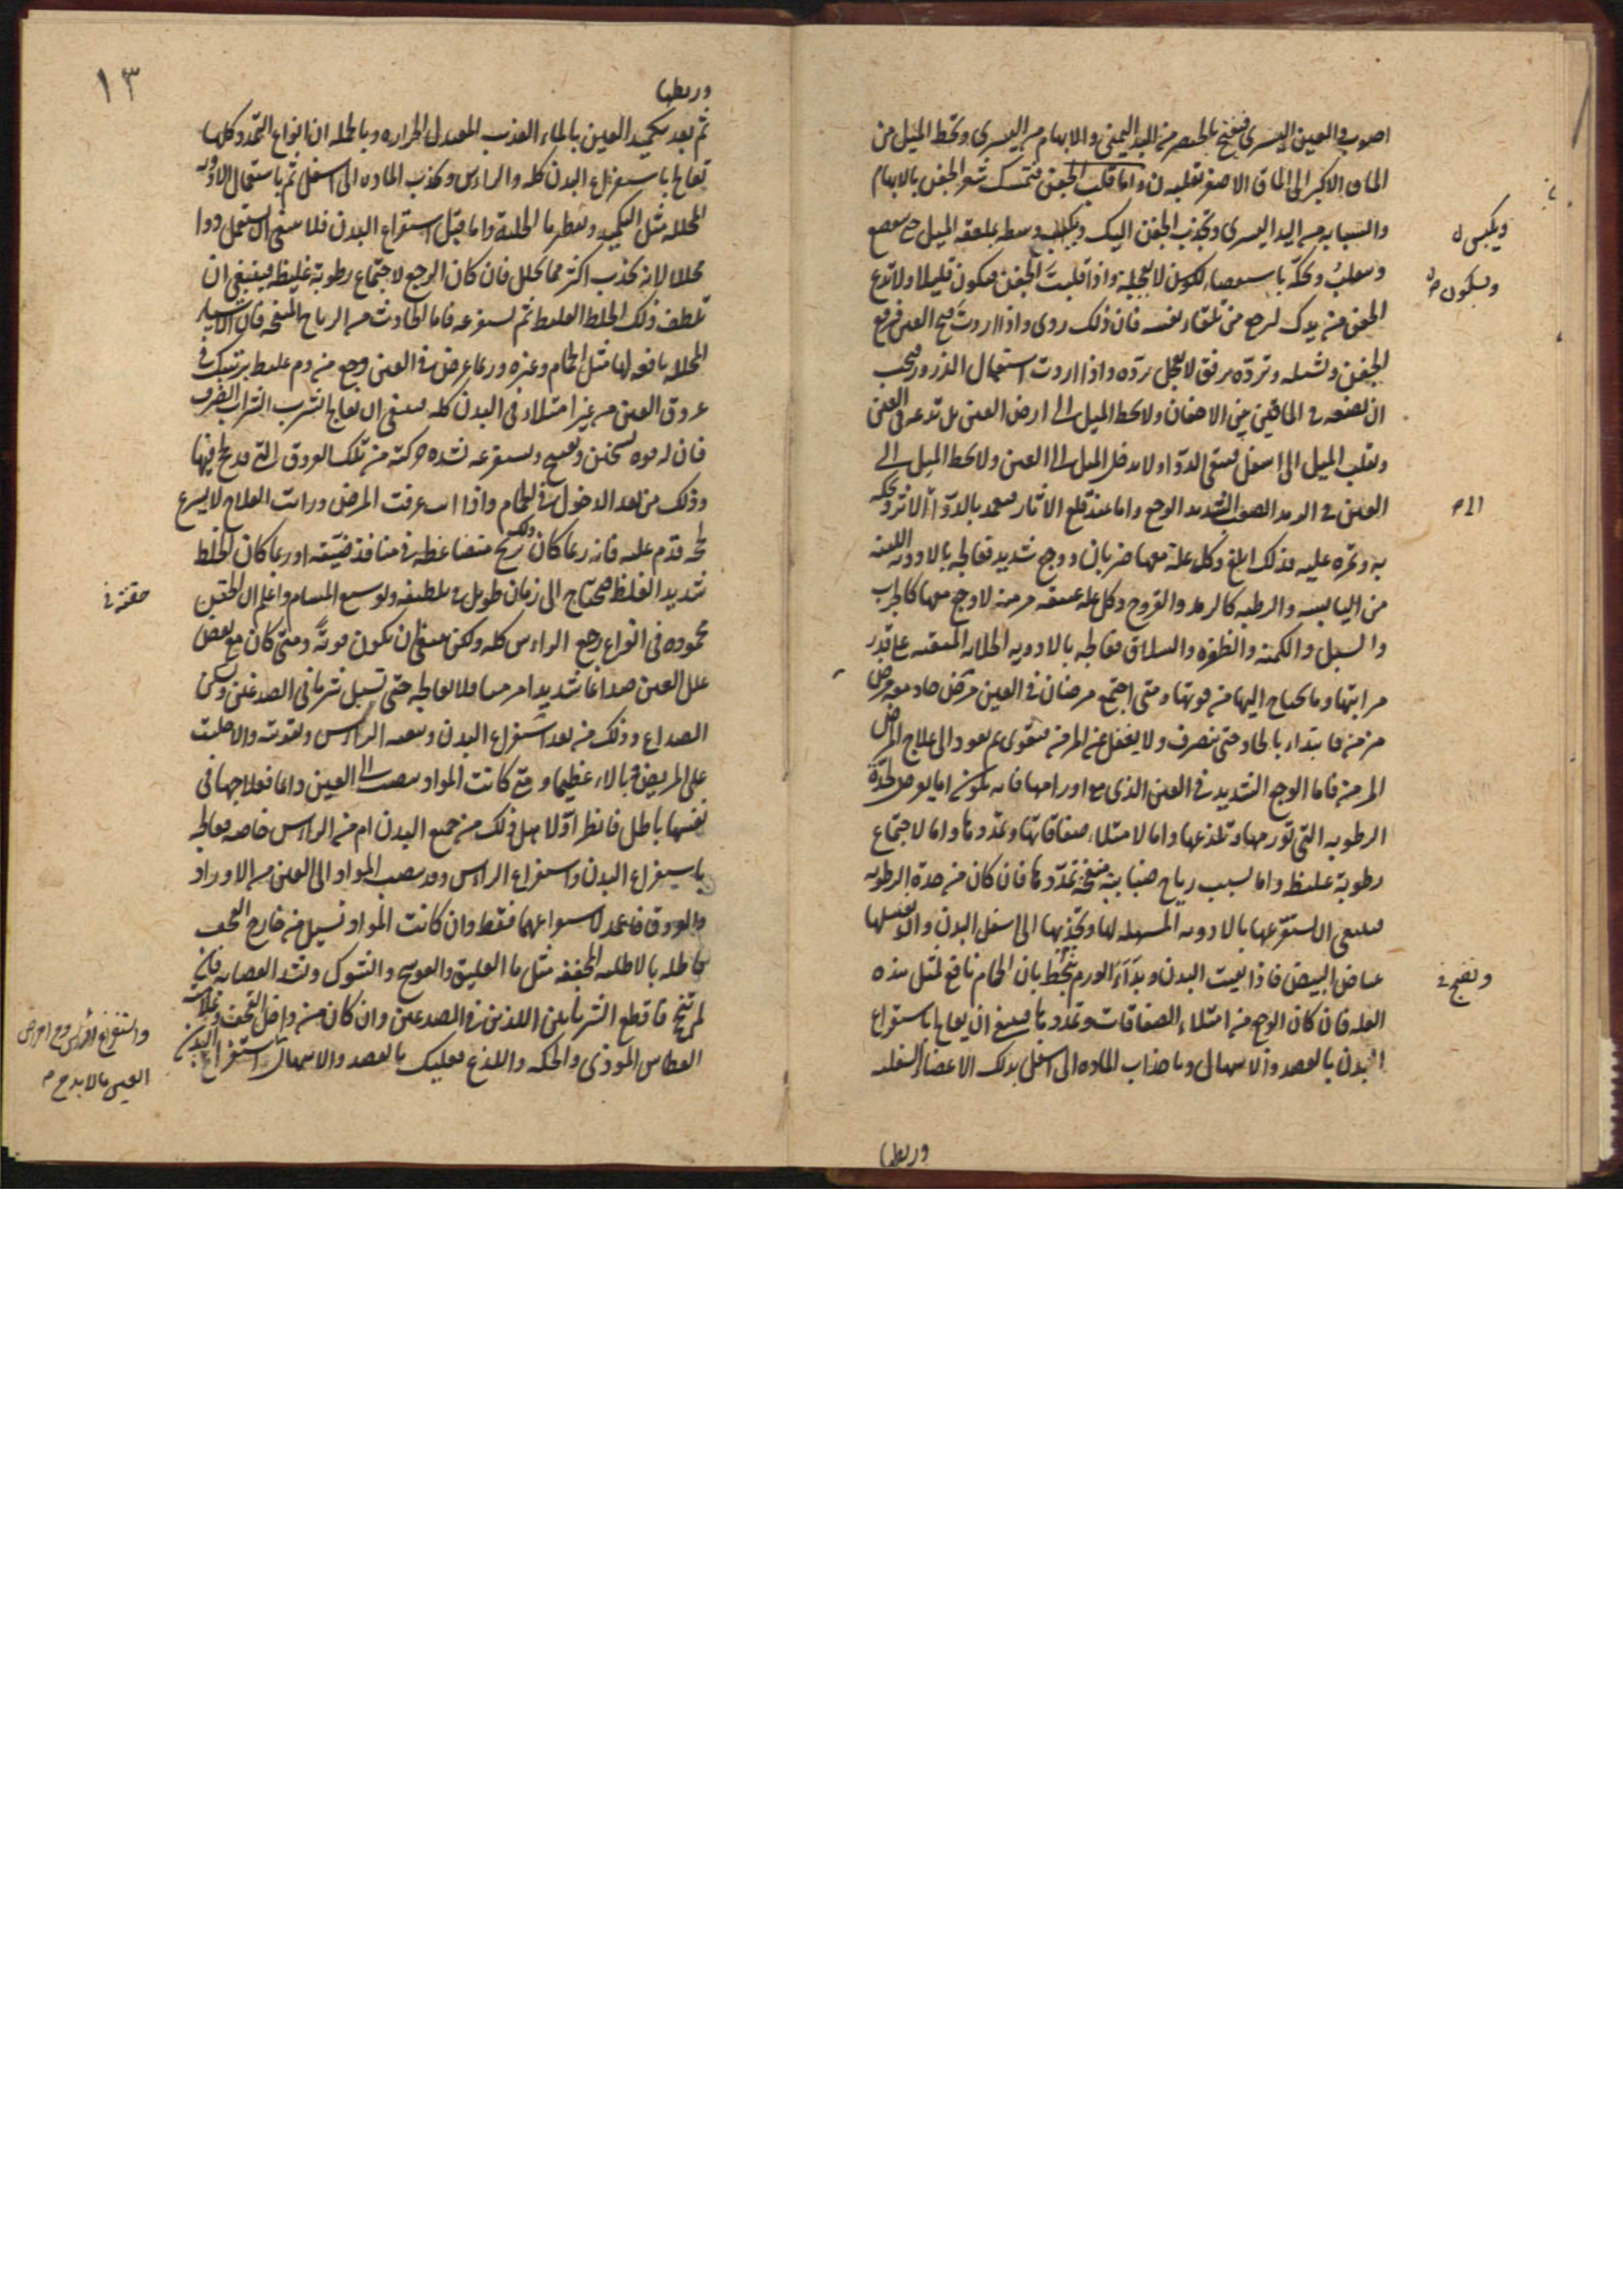 اصوب والعين اليسرى فيفتح بالخنصر من اليد اليمنى والابهام من اليسرى وتخط الميل من
الماق الاكبر الى الماق الاصغر واما قلب الجفن فتمسك شعر الجفن بالابهام
والسبابه من اليد اليسرى وتجذب الجفن اليك وسطه بملعقه الميل حتى
ويكبس
وتحكه باستقصاء واذا قلبت الجفن فيكون قليلا ولا تدع
ويكون
الجفن من يدك يرجع من تلقاء نفسه فان ذلك ردى واذا اردت فتح العين فرفع
الجفن وتشيله وتردّه برفق لا تعجل بردّه واذا اردت استعمال الذرور فيجب
ان تضعه فى الماقين بين الاجفان ولا تخط الميل الى ارض العين بل تدعه فى العين
وتقلب الميل الى اسفل فيبقى الدواء ولا تدخل الميل الى العين ولا تخط الميل الى
العين فى الرمد الصعب الشديد الوجع واما عند قلع الاثار فيعمد بالدواء الاثر وتحكه
به وتمره عليه فذلك ابلغ وكل علة معها ضربان ووجع شديد تعالجه بالادويه اللينه
من اليابسه والرطبه كالرمد والقروح وكل علة عتيقه مزمنه لا وجع معها كالجرب
والسبل والكمنه والظفره والسلاق فعالجه بالادويه الجلاءه المنقيه على قدر
مراتبها وما يحتاج اليها من قوتها ومتى اجتمع مرضان فى العين مرض حاد معه مرض
مزمن فابتداء بالحاد حتى ينصرف ولا يغفل عن المزمن فتقوى ثم يعود الى علاج المرض
المزمن فاما الوجع الشديد فى العين الذى مع اورامها فانه يكون اما لحدّة
الرطوبه التى تورمها وتلذعها واما لامتلاء صفاقاتها وتمدّدها واما لاجتماع
رطوبة غليظ واما بسبب رياح ضبابيه منفخه تمدّدها فان كان من حدة الرطوبه
فينبغى ان تستفرغها بالادويه المسهله لها وتجذبها الى اسفل البدن وان تغسلها
بياض البيض فاذا نقيت البدن وبدآء الورم ينحط فان الحمام نافع لمثل هذه
ونضج
العله فان كان الوجع من امتلاء الصفاقات وتمدّدها فينبغى ان يعالج باستفراغ
البدن بالفصد والاسهال وباجذاب الماده الى اسفل بدلك الاعضاء السفليه
وربطها
١٣
وربطها
ثم بعد تكميد العين بالماء العذب المعتدل الحراره وبالجمله ان انواع التمدّد كلها
تعالج باستفراغ البدن كله والراس وتجذب الماده الى اسفل ثم باستعمال الادويه
المحلله مثل التكميد وتقطير ما الحلبة واما قبل استفراغ البدن فلا ينبغى ان تستعمل دواء
محللا لانه يجذب اكثر مما يحلل فان كان الوجع لاجتماع رطوبة غليظه فينبغى ان
تلطف ذلك الخلط الغليظ ثم تستفرغه فاما الحادث من الرياح المنفخه فان الاشياء
المحللة نافعه لها مثل الحمام وغيره وربما عرض فى العين وجع من دم غليظ يرتبك فى
عروق العين من غير امتلاء فى البدن كله فينبغى ان تعالج بشرب الشراب الصرف
فان له قوه تسخن وتفتح وتستفرغه لشده حركته من تلك العروق التى قد لحج فيها
وذلك من بعد الدخول فى الحمام واذا انت عرفت المرض ورايت العلاج لا يسرع
نجحه فدم عليه فانه ربما كان ذلك ريح متضاغطه فى منافذ ضيّقه او ربما كان الخلط
شديد الغلظ فيحتاج الى زمان طويل فى تلطيفه وتوسيع المسام واعلم ان الحقن
حقنه
محموده فى انواع وجع الراس كله ولكن ينبغى ان يكون قويّه ومتى كان مع بعض
علل العين صداعا شديدا مزمنا فلا تعالجه حتى تسبل شريانى الصدغين ويسكن
الصداع وذلك من بعد استفراغ البدن وتنقيه الراس وتقويته والا جلبت
على المريض بلاء عظيما ومتى كانت المواد تنصب الى العين دائما فعلاجها فى
نفسها باطل فانظر اوّلا هل ذلك من جميع البدن ام من الراس خاصه فعالجه
باستفراغ البدن واستفراغ الراس وقد تنصب المواد الى العين من الاوراد
والعروق فاعمد لاستفراغهما فقط وان كانت المواد تسيل من خارج القحف
فاطله بالاطليه المجففه مثل ما العليق والعوسج والشوك وتشد العصابه فان
لم تنجح فاقطع الشريانين اللذين فى الصدغين وان كان من داخل القحف وعلامته
العطاس الموذى والحكه واللذع فعليك بالفصد والاسهال واستفراغ البدن
واستفراغ الراس
العين